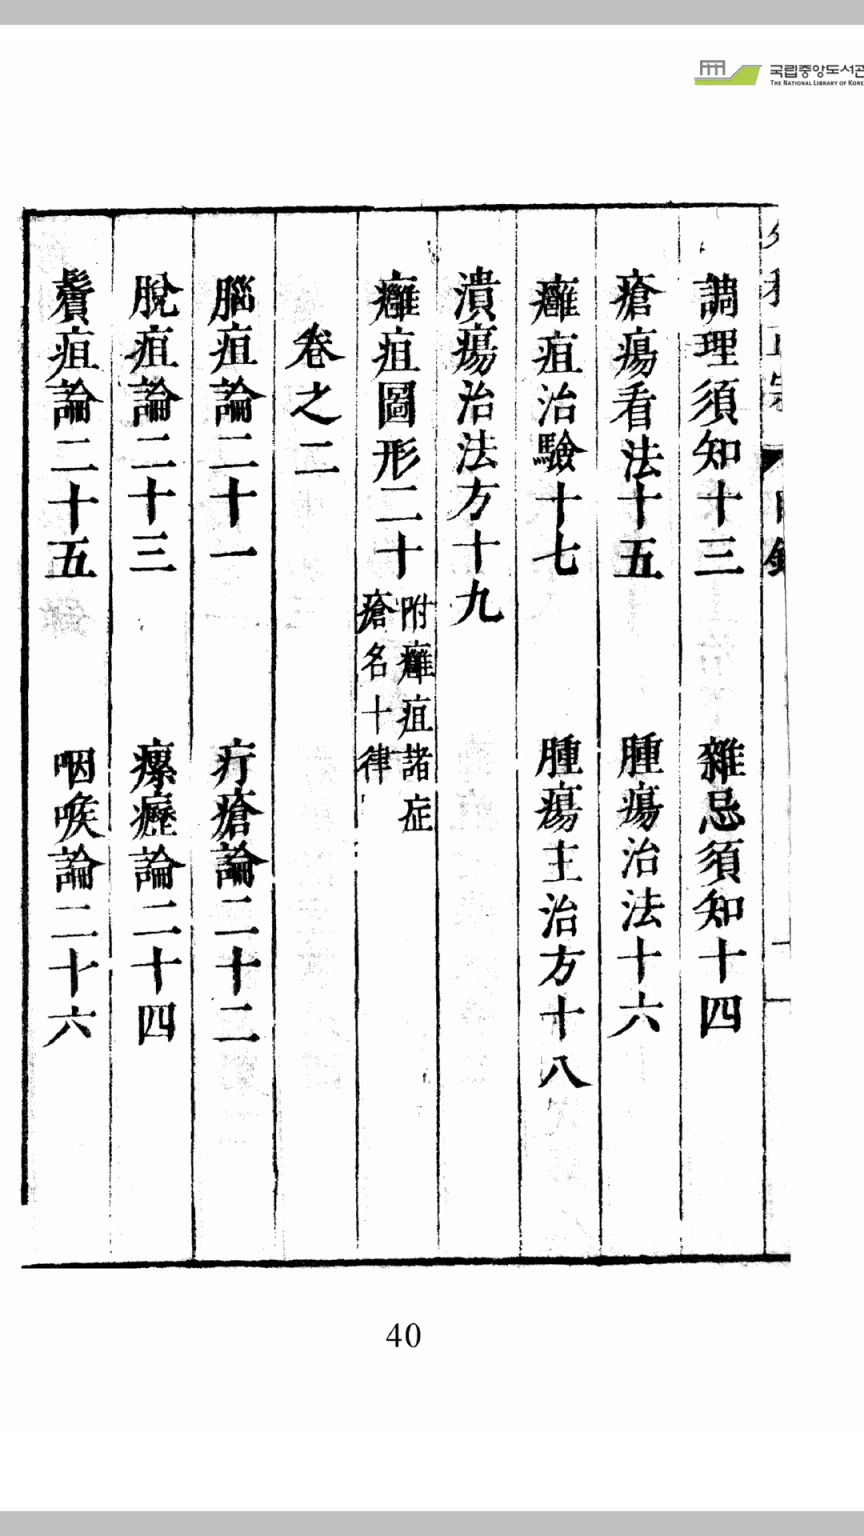 국립중앙도서관
THE NATIONAL LIBRARY OF KORE
調理須知十三 雜忌須知十四
瘡瘍看法十五 腫瘍治法十六
癰疽治驗十七 腫瘍主治方十八
潰瘍治法方十九
癰疽圖形二十 附癰疽諸症
瘡名十律
卷之二
腦疽論二十一 疔瘡論二十二
脫疽論二十三 瘰癧論二十四
鬢疽論二十五 咽喉論二十六
40